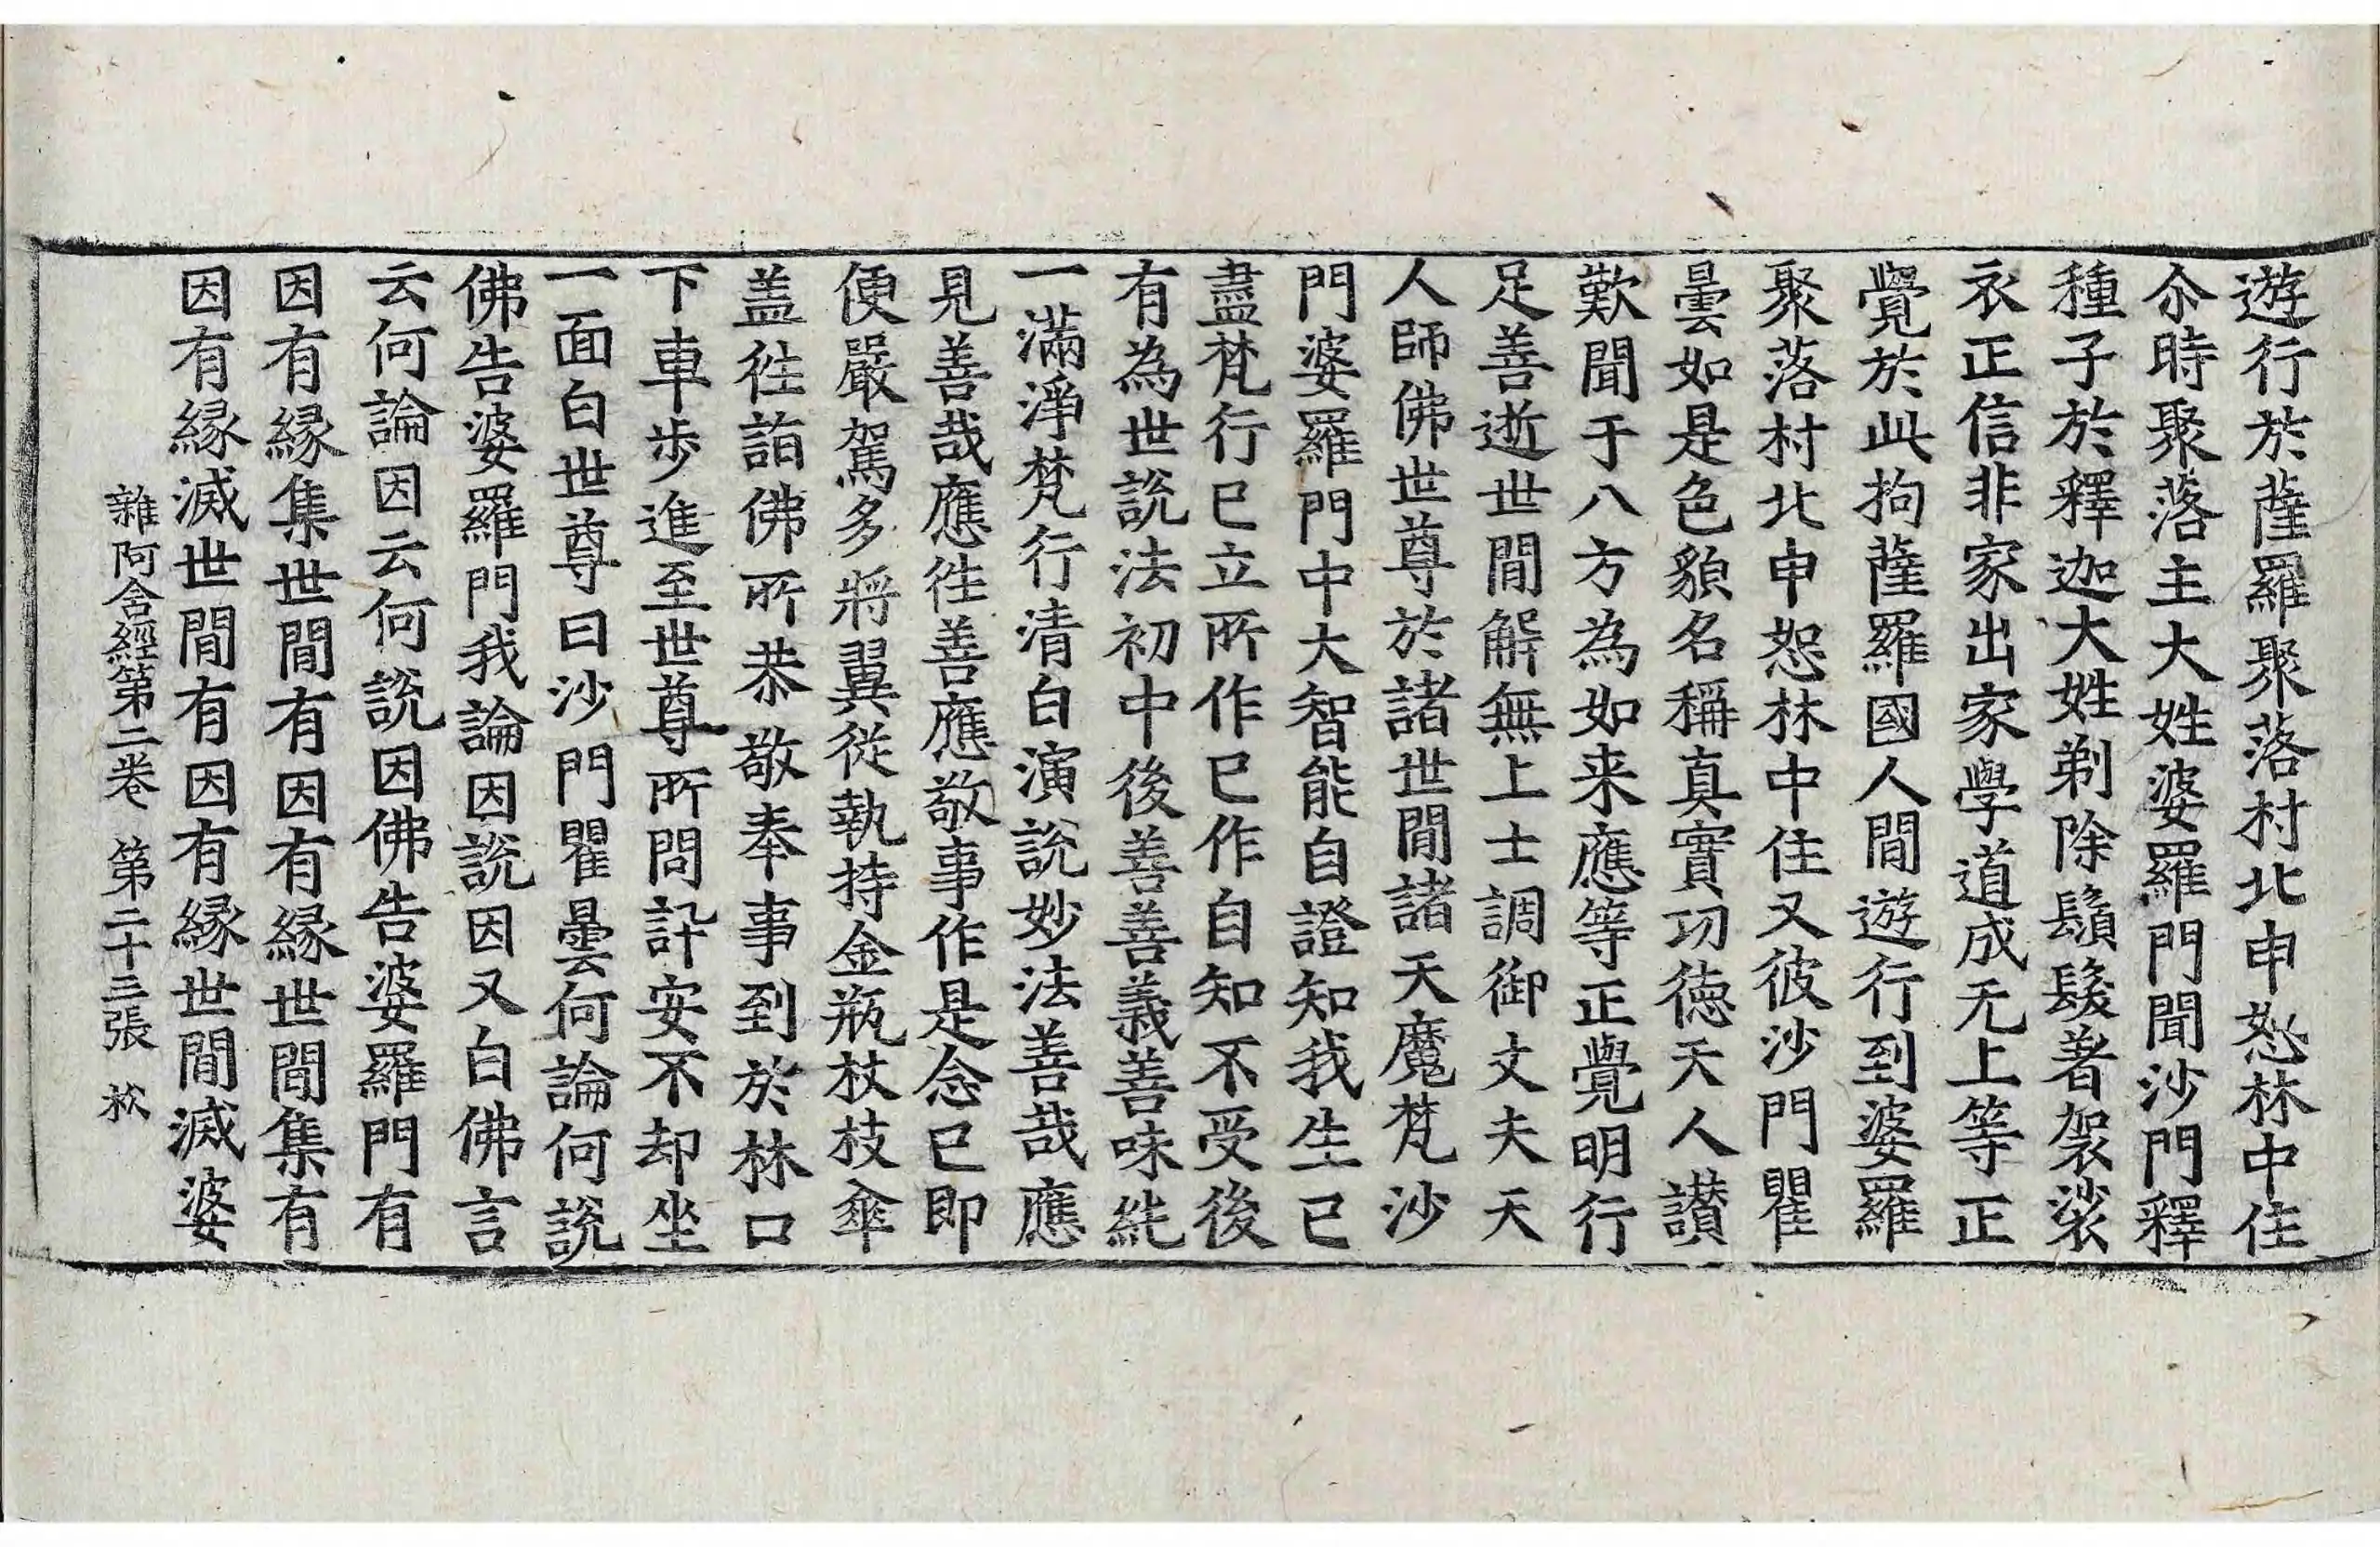 遊行於薩羅聚落村北申恕林中住
尒時聚落主大姓婆羅門聞沙門釋
種子於釋迦大姓剃除鬚髮著袈裟
衣正信非家出家學道成无上等正
覺於此拘薩羅國人間遊行到婆羅
聚落村北申恕林中住又彼沙門瞿
曇如是色貌名稱真實功德天人讃
歎聞于八方為如来應等正覺明行
足善逝世間解無上士調御丈夫天
人師佛世尊於諸世間諸天魔梵沙
門婆羅門中大智能自證知我生已
盡梵行已立所作已作自知不受後
有為世說法初中後善善義善味純
一滿淨梵行清白演說妙法善哉應
見善哉應往善應敬事作是念已即
便嚴駕多將翼從執持金瓶杖枝傘
盖往詣佛所恭敬奉事到於林口
下車步進至世尊所問訊安不却坐
一面白世尊曰沙門瞿曇何論何說
佛告婆羅門我論因說因又白佛言
云何論因云何說因佛告婆羅門有
因有緣集世間有因有緣世間集有
因有緣滅世間有因有緣世間滅婆
雜阿含經第二卷 第二十三張 松